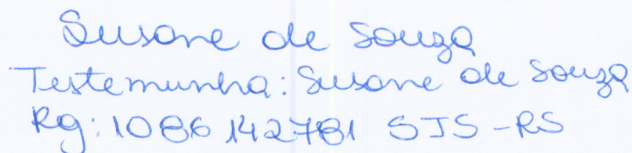 Susane de Souza
Testemunha: Susane de Souza
Rg: 1086142781 SJS-RS